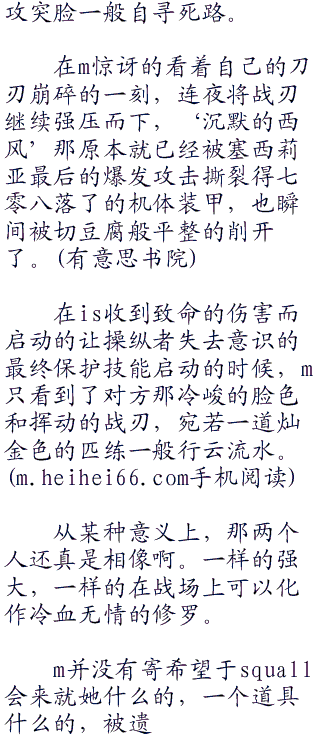 攻突脸一般自寻死路。
在m惊讶的看着自己的刀
刃崩碎的一刻，连夜将战刃
继续强压而下，‘沉默的西
风’那原本就已经被塞西莉
亚最后的爆发攻击撕裂得七
零八落了的机体装甲，也瞬
间被切豆腐般平整的削开
了。(有意思书院)
在is收到致命的伤害而
启动的让操纵者失去意识的
最终保护技能启动的时候，m
只看到了对方那冷峻的脸色
和挥动的战刃，宛若一道灿
金色的匹练一般行云流水。
(m.heihei66.com手机阅读)
从某种意义上，那两个
人还真是相像啊。一样的强
大，一样的在战场上可以化
作冷血无情的修罗。
m并没有寄希望于squall
会来就她什么的，一个道具
什么的，被遗